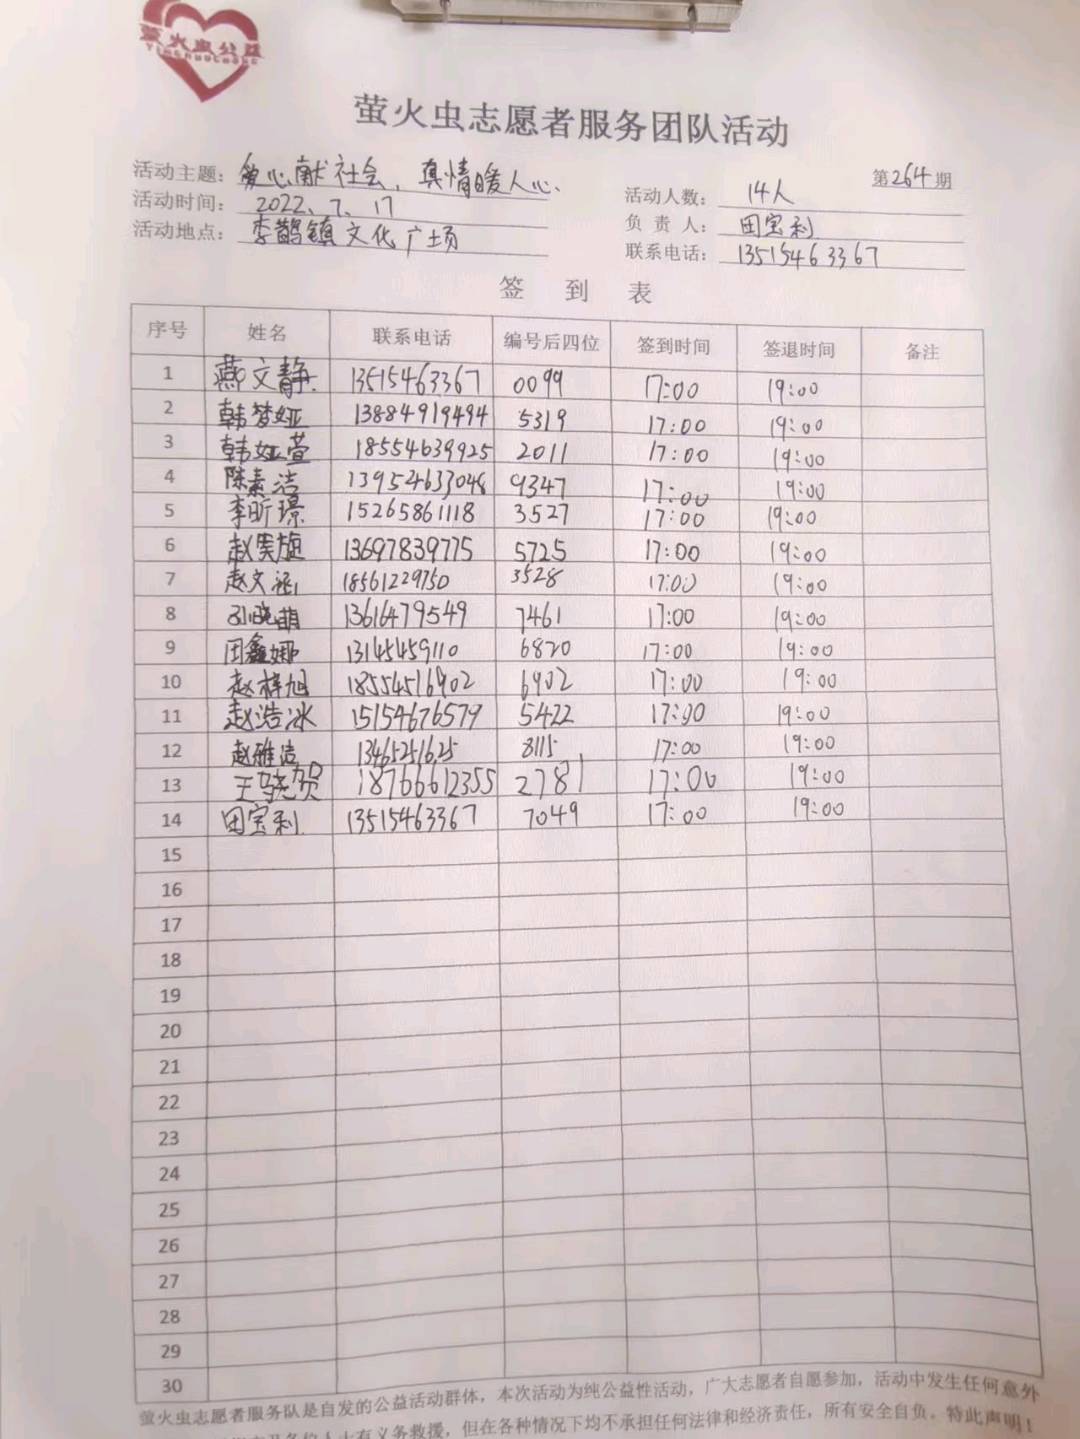 萤火虫公益
萤火虫志愿者服务团队活动
第264期
活动主题：爱心献社会、真情暖人心、
活动人数：14人
活动时间：2022、7、17
负责人：田宝利
活动地点：李鹊镇文化广场
联系电话：13515463367
签到表
序号 姓名 联系电话 编号后四位 签到时间 签退时间 备注
1 燕文静 13515463367 0099 17:00 19:00
2 韩梦娅 13884919494 5319 17:00 19:00
3 韩娅萱 18554639925 2011 17:00 19:00
4 陈素洁 13954633048 9347 17:00 19:00
5 李昕璟 15265861118 3527 17:00 19:00
6 赵奕旋 13697839775 5725 17:00 19:00
7 赵文涵 18561229750 3528 17:00 19:00
8 孙晓萌 13616479549 7461 17:00 19:00
9 田鑫娜 13145459110 6820 17:00 19:00
10 赵梓旭 18554516902 6902 17:00 19:00
11 赵浩冰 15154676579 5422 17:00 19:00
12 赵雅洁 13465251625 8115 17:00 19:00
13 王骁贺 18766612355 2781 17:00 19:00
14 田宝利 13515463367 7049 17:00 19:00
15
16
17
18
19
20
21
22
23
24
25
26
27
28
29
30
萤火虫志愿者服务队是自发的公益活动群体，本次活动为纯公益性活动，广大志愿者自愿参加，活动中发生任何意外
有义务救援，但在各种情况下均不承担任何法律和经济责任，所有安全自负。特此声明！